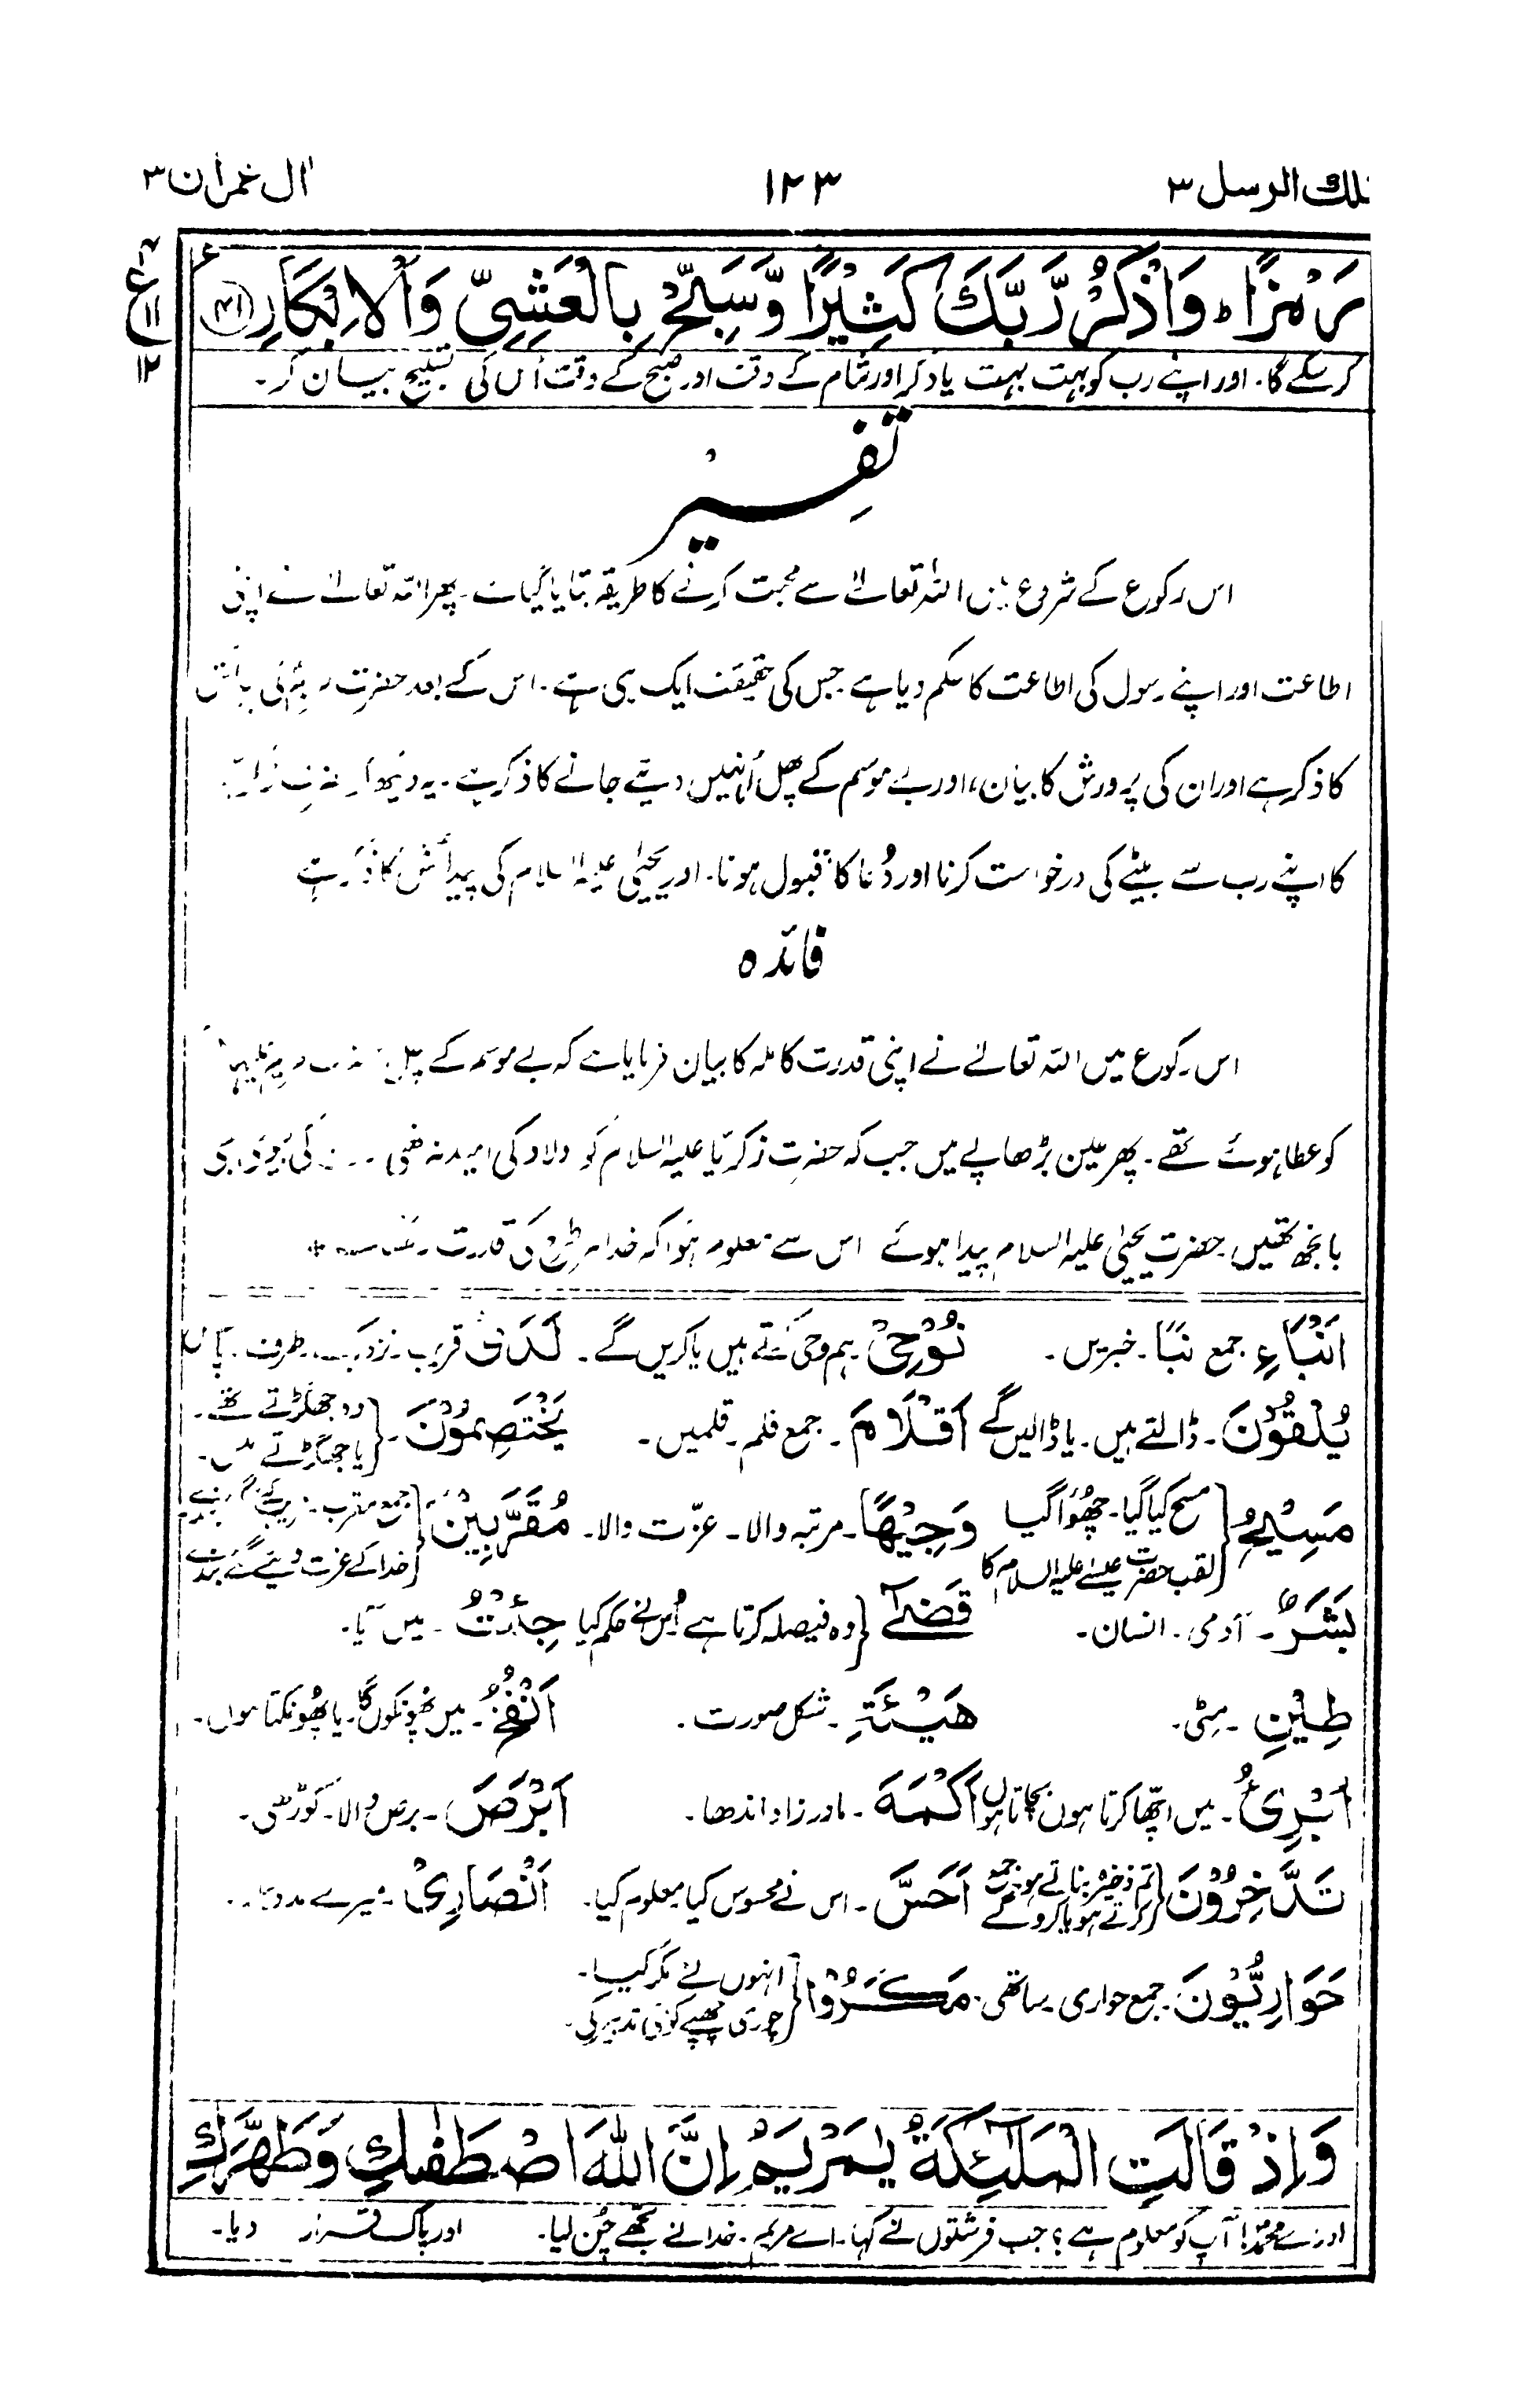 تلك الرسل ۳
۱۲۳
اٰل عمرٰن ۳
رَمْزًا ؕ وَاذْكُرْ رَّبَّكَ كَثِيْرًا وَّسَبِّحْ بِالْعَشِيِّ وَالْاِبْكَارِ ﴿۴۱﴾
ع ۱۱ ۱۲
کر سکے گا۔ اور اپنے رب کو بہت بہت یاد کر اور شام کے وقت اور صبح کے وقت اُس کی تسبیح بیان کر۔
تفسیر
اس رکوع کے شروع میں اللہ تعالیٰ سے محبت کرنے کا طریقہ بتایا گیا ہے۔ پھر اللہ تعالیٰ نے اپنی
اطاعت اور اپنے رسول کی اطاعت کا حکم دیا ہے جس کی حقیقت ایک ہی ہے۔ اس کے بعد حضرت
کا ذکر ہے اور ان کی پرورش کا بیان، اور بے موسم کے پھل اُنہیں دیئے جانے کا ذکر ہے۔ یہ دیکھ کر
کا اپنے رب سے بیٹے کی درخواست کرنا اور دُعا کا قبول ہونا۔ اور یحییٰ علیہ السلام کی پیدائش کا ذکر ہے
فائدہ
اس رکوع میں اللہ تعالےٰ نے اپنی قدرت کاملہ کا بیان فرمایا ہے کہ بے موسم کے پھل
کو عطا ہوئے تھے۔ پھر عین بڑھاپے میں جب کہ حضرت زکریّا علیہ السلام کو اولاد کی امید نہ تھی کی بیوی بھی
بانجھ تھیں۔ حضرت یحییٰ علیہ السلام پیدا ہوئے اس سے معلوم ہوا کہ خدا ہر طرح کی قدرت
اَنْبَآءِ جمع نَبَاً۔ خبریں۔ نُوْحِیْ ہم وحی کرتے ہیں یا کریں گے۔ لَدٰی قریب۔ نزدیک۔ طرف۔ پاس
يُلْقُوْنَ۔ ڈالتے ہیں۔ یا ڈالیں گے اَقْلَامَ۔ جمع قلم۔ قلمیں۔ يَخْتَصِمُوْنَ۔ وہ جھگڑتے تھے۔ یا جھگڑتے ہیں۔
مَسِيْحُ مسح کیا گیا۔ چھُوا گیا لقب حضرت عیسیٰ علیہ السلام کا وَجِيْهًا۔ مرتبہ والا۔ عزّت والا۔ مُقَرَّبِيْنَ جمع مقرب۔ خدا کے عزت دیئے گئے بندے
بَشَرٌ۔ آدمی۔ انسان۔ قَضٰٓی وہ فیصلہ کرتا ہے اُس نے حکم کیا جِئْتُ۔ میں آیا۔
طِيْنِ۔ مٹی۔ هَيْئَةِ۔ شکل صورت۔ اَنْفُخُ۔ میں پھونکوں گا۔ یا پھونکتا ہوں۔
اُبْرِئُ۔ میں اچّھا کرتا ہوں بچاتا ہوں اَكْمَهَ۔ مادر زاد اندھا۔ اَبْرَصَ۔ برص والا۔ کوڑھی۔
تَدَّخِرُوْنَ تم ذخیرہ بناتے ہو جمع کرتے ہو یا کرو گے اَحَسَّ۔ اس نے محسوس کیا۔ معلوم کیا۔ اَنْصَارِیْ۔ میرے مددگار۔
حَوَارِيُّوْنَ۔ جمع حواری۔ ساتھی۔ مَكَرُوْا انہوں نے مکر کیا۔ چوری چھپے کوئی تدبیر کی۔
وَاِذْ قَالَتِ الْمَلٰٓئِكَةُ يٰمَرْيَمُ اِنَّ اللّٰهَ اصْطَفٰىكِ وَطَهَّرَكِ
اور اے محمدؐ! آپ کو معلوم ہے؟ جب فرشتوں نے کہا۔ اے مریم۔ خدا نے تجھے چُن لیا۔ اور پاک قرار دیا۔